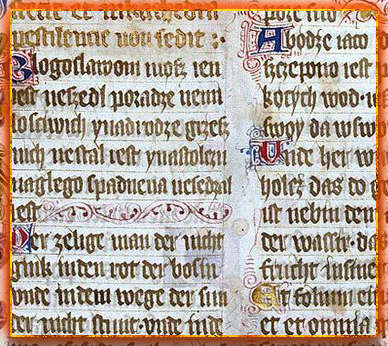 pestilencie non sedit :·
Bogoslawoni mosz ien
ne szedl po radze nemi
losciwich y na drodze grzesz
nich ne stal iest y na stolcu
naglego spadnena ne sedzal
iest
Der zelige man der nicht
gink in den rot der bosin
vnde in dem wege der sun
der nicht stunt· vnde inde
pore suo
A bodze iaco
szczepono iest
wod·
swoy da w sw
Unde her w
holcz das do g
ist nebin dem
der wassir· da
frucht in sine
Et folium ei
et et omnia